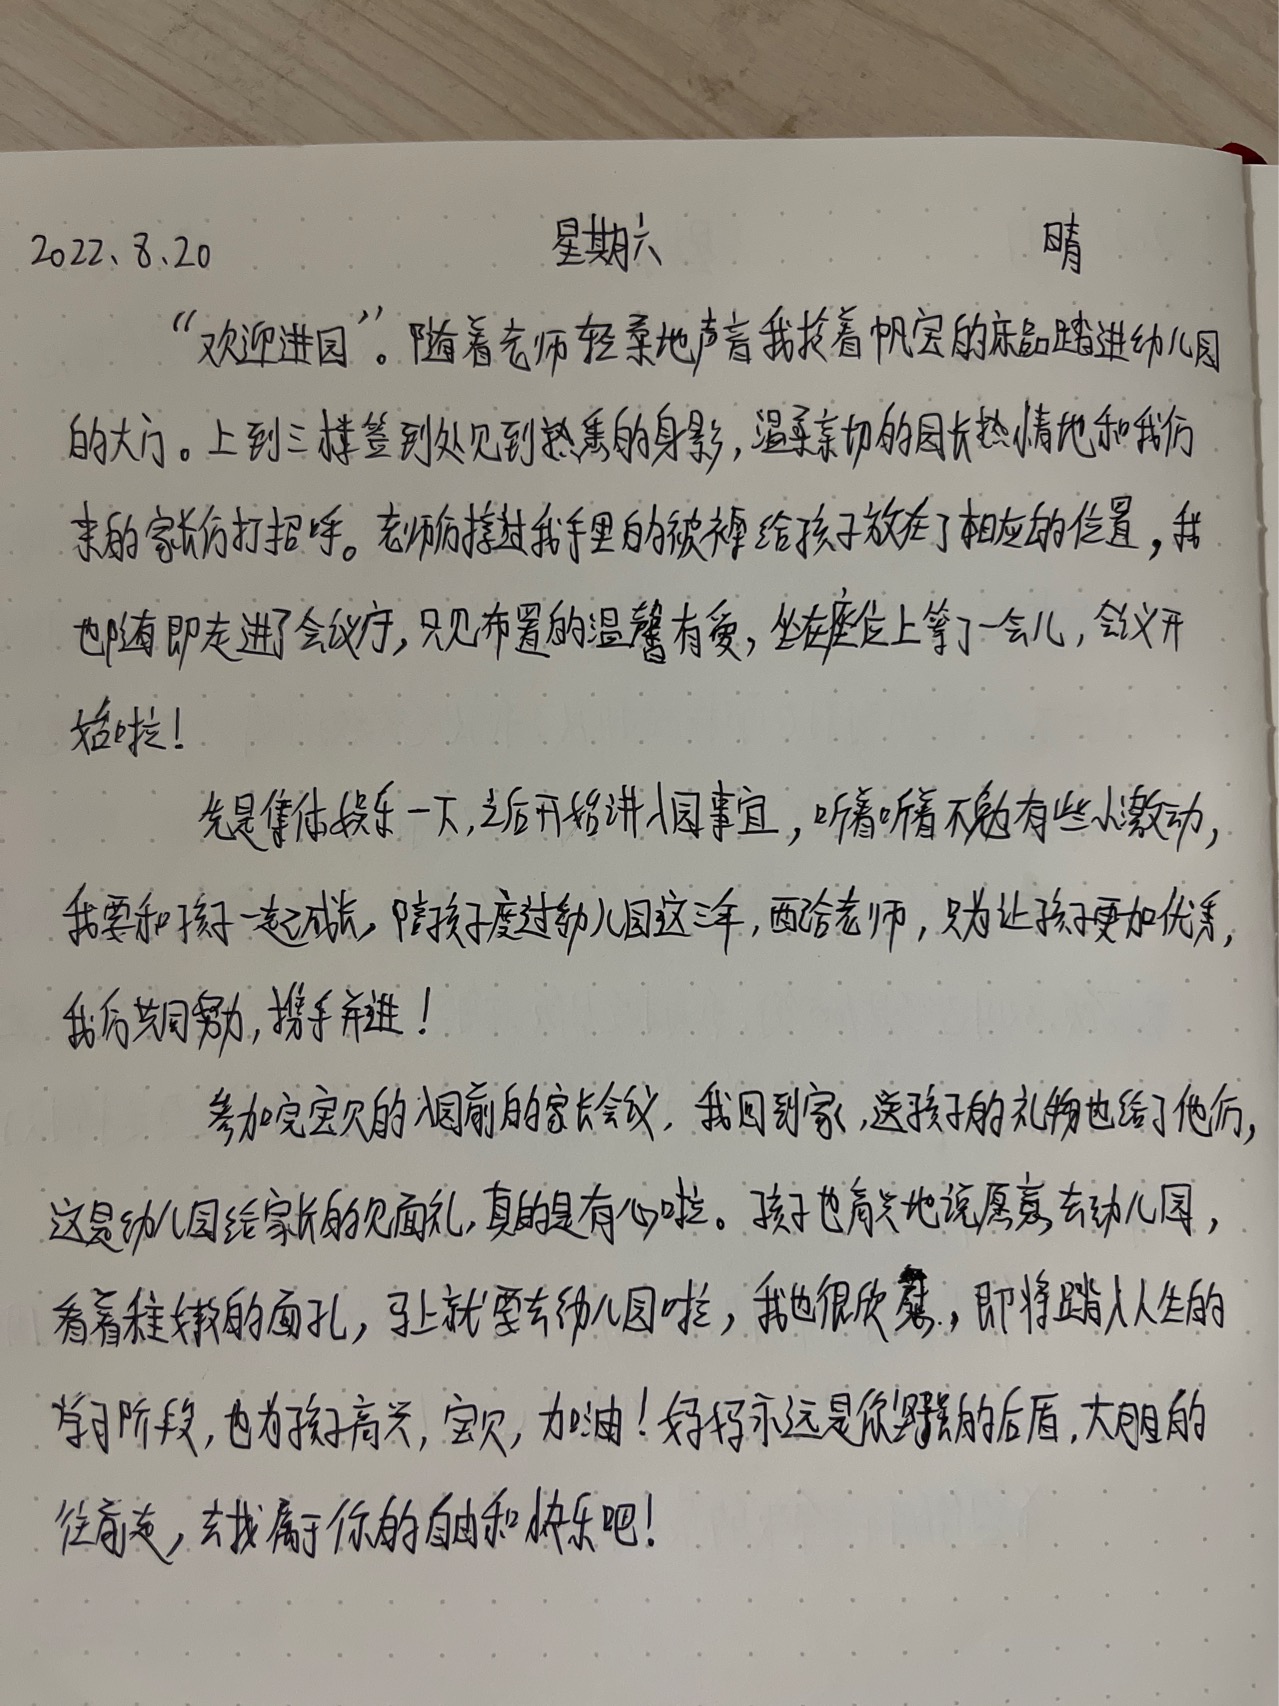 2022、8、20 星期六 晴
“欢迎进园”。随着老师轻柔地声音我拎着帆宝的床品踏进幼儿园
的大门。上到三楼签到处见到熟悉的身影，温柔亲切的园长热情地和我们
来的家长们打招呼。老师们接过我手里的被褥给孩子放在了相应的位置，我
也随即走进了会议厅，只见布置的温馨有爱，坐在座位上等了一会儿，会议开
始啦！
先是集体娱乐一下，之后开始讲入园事宜，听着听着不勉有些小激动，
我要和孩子一起成长，陪孩子度过幼儿园这三年，配合老师，只为让孩子更加优秀，
我们共同努力，携手并进！
参加完宝贝的入园前的家长会议，我回到家，送孩子的礼物也给了他们，
这是幼儿园给家长的见面礼，真的是有心啦。孩子也高兴地说愿意去幼儿园，
看着稚嫩的面孔，马上就要去幼儿园啦，我也很欣慰，即将踏入人生的
学习阶段，也为孩子高兴，宝贝，加油！妈妈永远是你坚强的后盾，大胆的
往前走，去找属于你的自由和快乐吧！